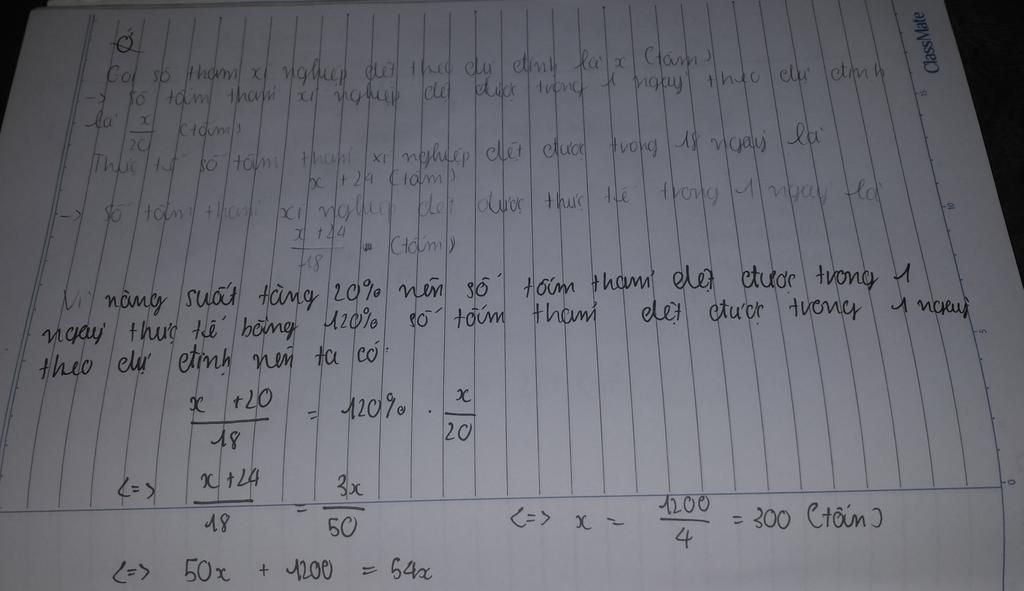 ClassMate
Gọi số thảm xí nghiệp dệt theo dự định là x (tấm)
-> số tấm thảm xí nghiệp dệt được trong 1 ngày theo dự định
là x/20 (tấm)
Thực tế số tấm thảm xí nghiệp dệt được trong 18 ngày là
x + 24 (tấm)
-> số tấm thảm xí nghiệp dệt được thực tế trong 1 ngày là
x + 24/18 (tấm)
Vì năng suất tăng 20% nên số tấm thảm dệt được trong 1
ngày thực tế bằng 120% số tấm thảm dệt được trong 1 ngày
theo dự định nên ta có:
x + 20/18 = 120% . x/20
<=> x + 24/18 = 3x/50
<=> 50x + 1200 = 54x
<=> x = 1200/4 = 300 (tấm)